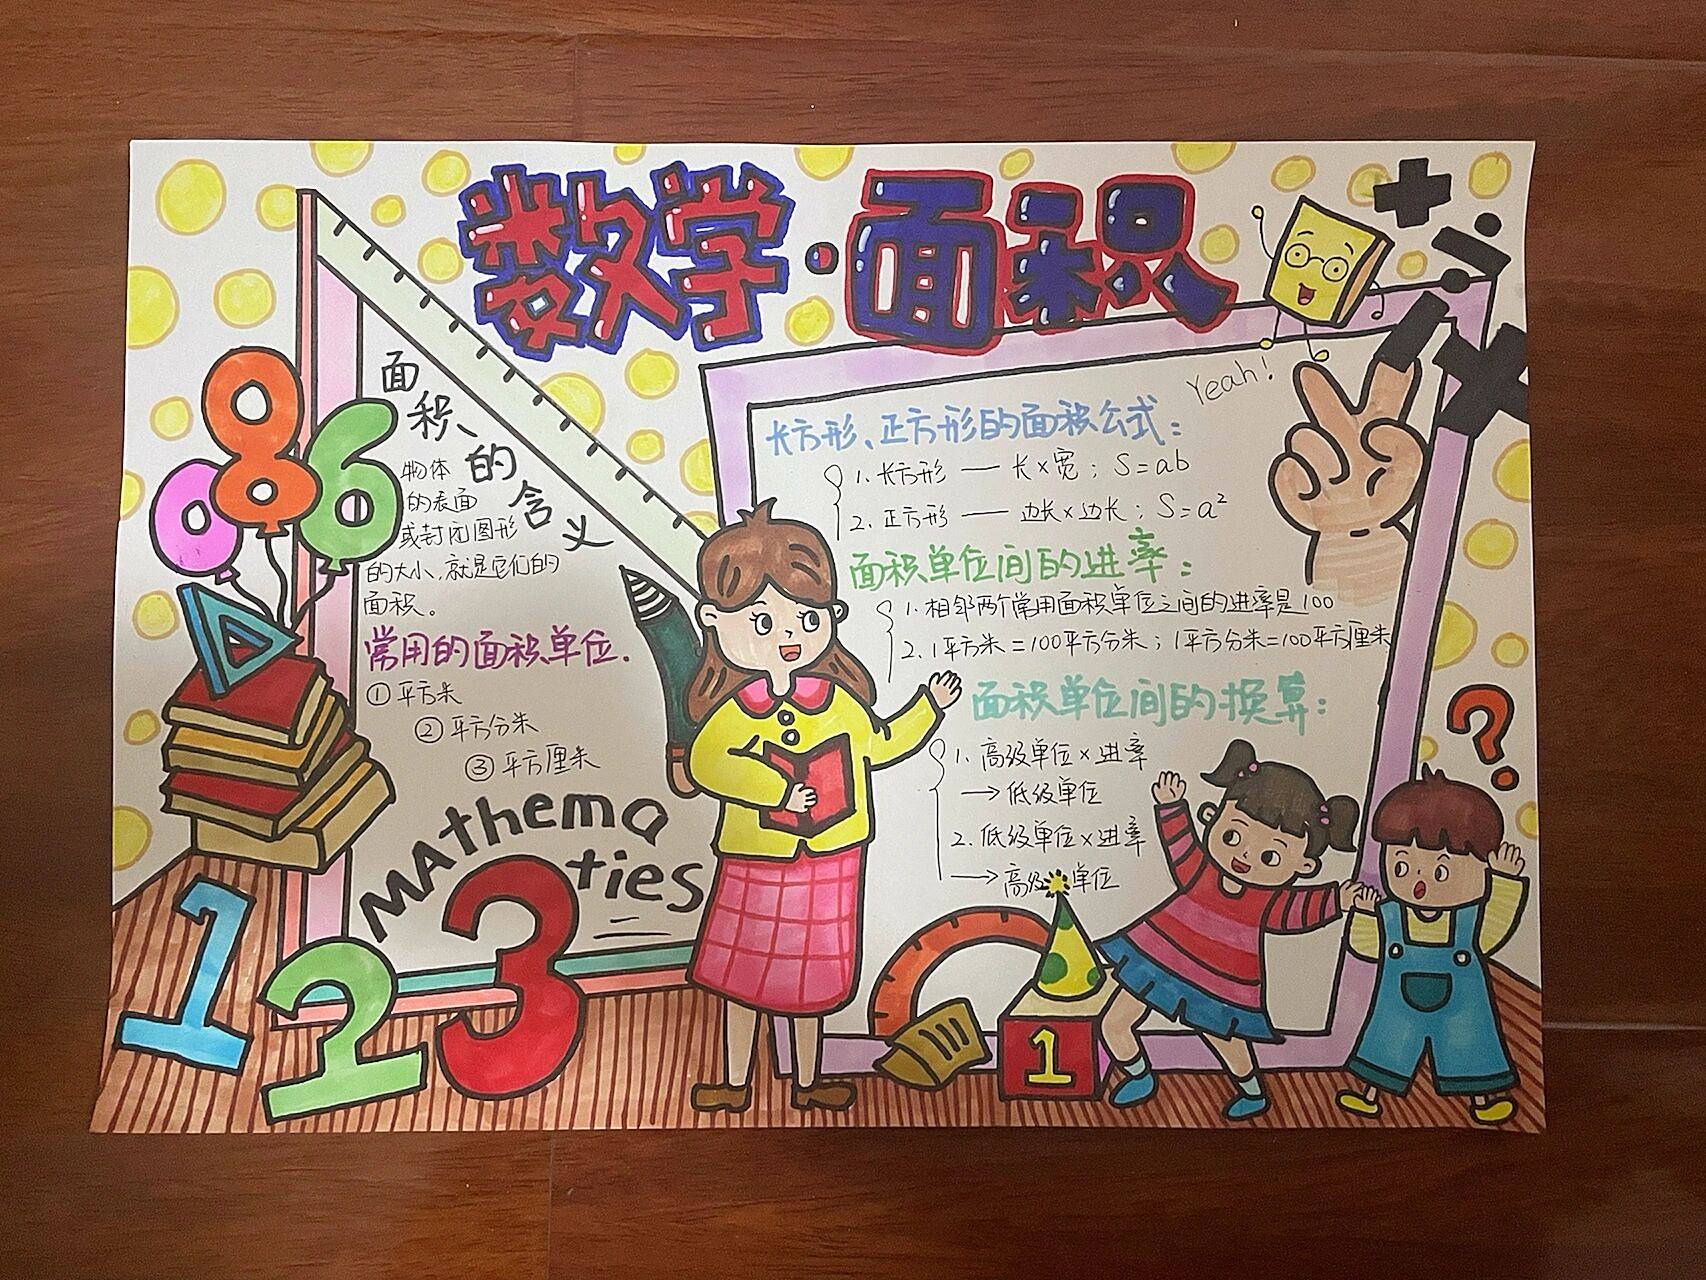 数学·面积
Yeah!
086
面积的含义
物体
的表面
或封闭图形
的大小,就是它们的
面积。
常用的面积单位.
① 平方米
② 平方分米
③ 平方厘米
MAthema
ties
1 2 3
长方形、正方形的面积公式:
1. 长方形 — 长×宽; S=ab
2. 正方形 — 边长×边长; S=a²
面积单位间的进率:
1. 相邻两个常用面积单位之间的进率是100
2. 1平方米=100平方分米; 1平方分米=100平方厘米
面积单位间的换算:
1. 高级单位×进率
→低级单位
2. 低级单位×进率
→高级单位
?
1